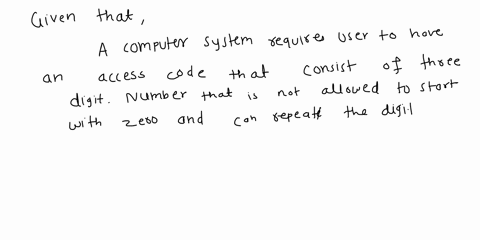 Given that,
A computer system requires user to have
an access code that consist of three
digit. Number that is not allowed to start
with zero and can repeat the digit